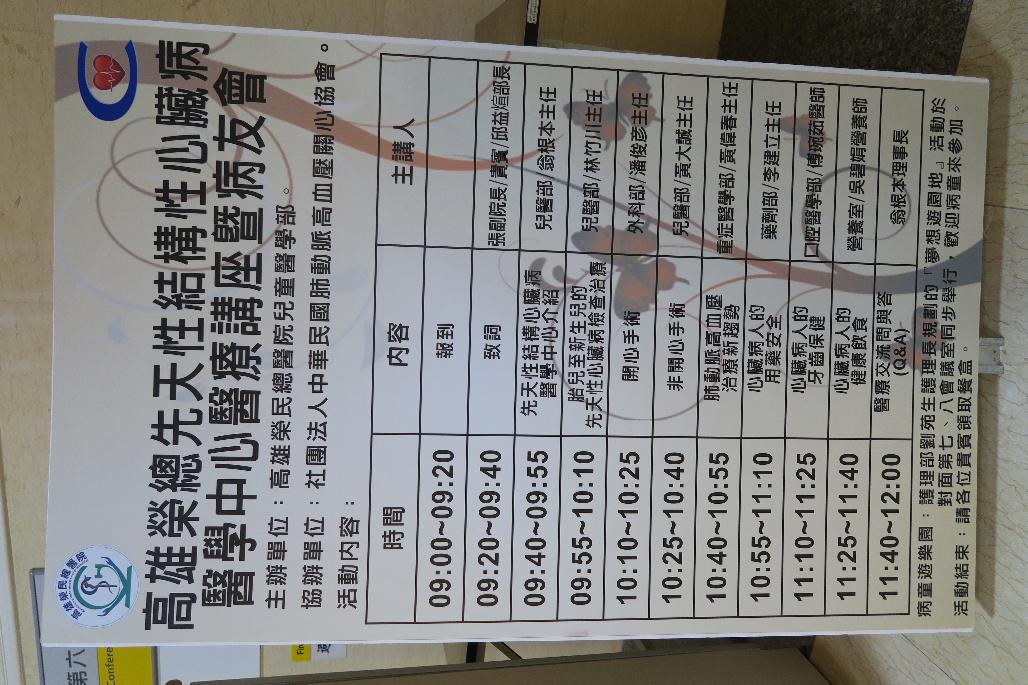 高雄榮總先天性結構性心臟病
醫學中心醫療講座暨病友會
主辦單位：高雄榮民總醫院兒童醫學部。
協辦單位：社團法人中華民國肺動脈高血壓關心協會。
活動內容：
時間 內容 主講人
09:00~09:20 報到
09:20~09:40 致詞 張副院長/貴賓/邱益煊部長
09:40~09:55 先天性結構心臟病
醫學中心介紹 兒醫部/翁根本主任
09:55~10:10 胎兒至新生兒的
先天性心臟病檢查治療 兒醫部/林竹川主任
10:10~10:25 開心手術 外科部/潘俊彥主任
10:25~10:40 非開心手術 兒醫部/黃大誠主任
10:40~10:55 肺動脈高血壓
治療新趨勢 重症醫學部/黃偉春主任
10:55~11:10 心臟病人的
用藥安全 藥劑部/李建立主任
11:10~11:25 心臟病人的
牙齒保健 口腔醫學部/傅琬茹醫師
11:25~11:40 心臟病人的
健康飲食 營養室/吳碧娟營養師
11:40~12:00 醫療交流問與答
(Q&A) 翁根本理事長
病童遊樂園：護理部劉苑生護理長規劃的「夢想遊園地」活動於
對面第七、八會議室同步舉行，歡迎病童來參加。
活動結束：請各位貴賓領取餐盒。
第六
Confere